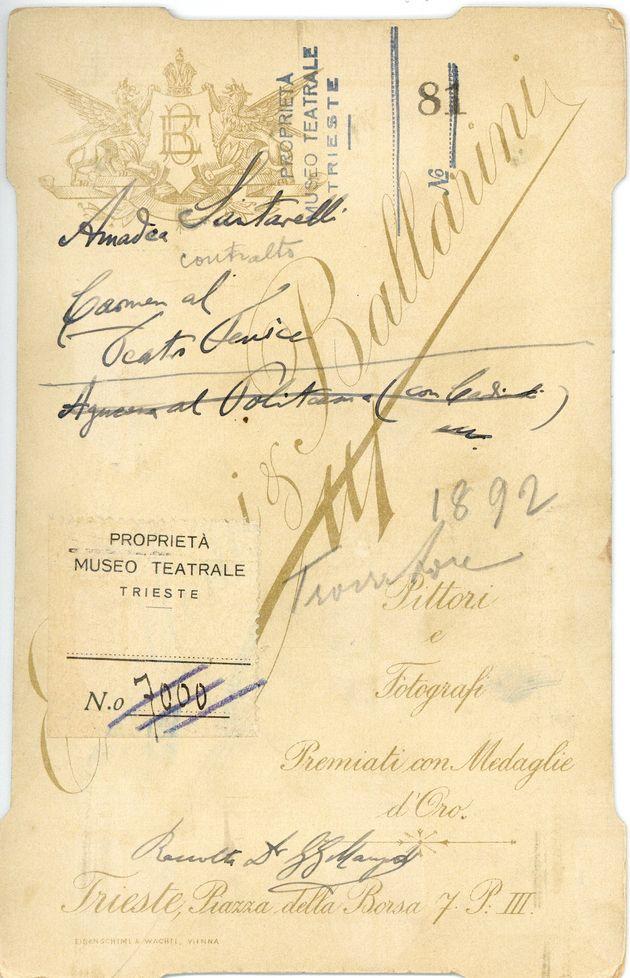 PROPRIETÀ
MUSEO TEATRALE
TRIESTE
No
81
Amadea Santarelli
contralto
Carmen al
Teatro Fenice
al Politeama (con
& Ballarini
1892
Trovatore
PROPRIETÀ
MUSEO TEATRALE
TRIESTE
N.o 7000
Pittori
e
Fotografi
Premiati con Medaglie
d'Oro.
Raccolta Dr
Trieste, Piazza della Borsa 7. P. III.
EISENSCHIML & WACHTL, VIENNA